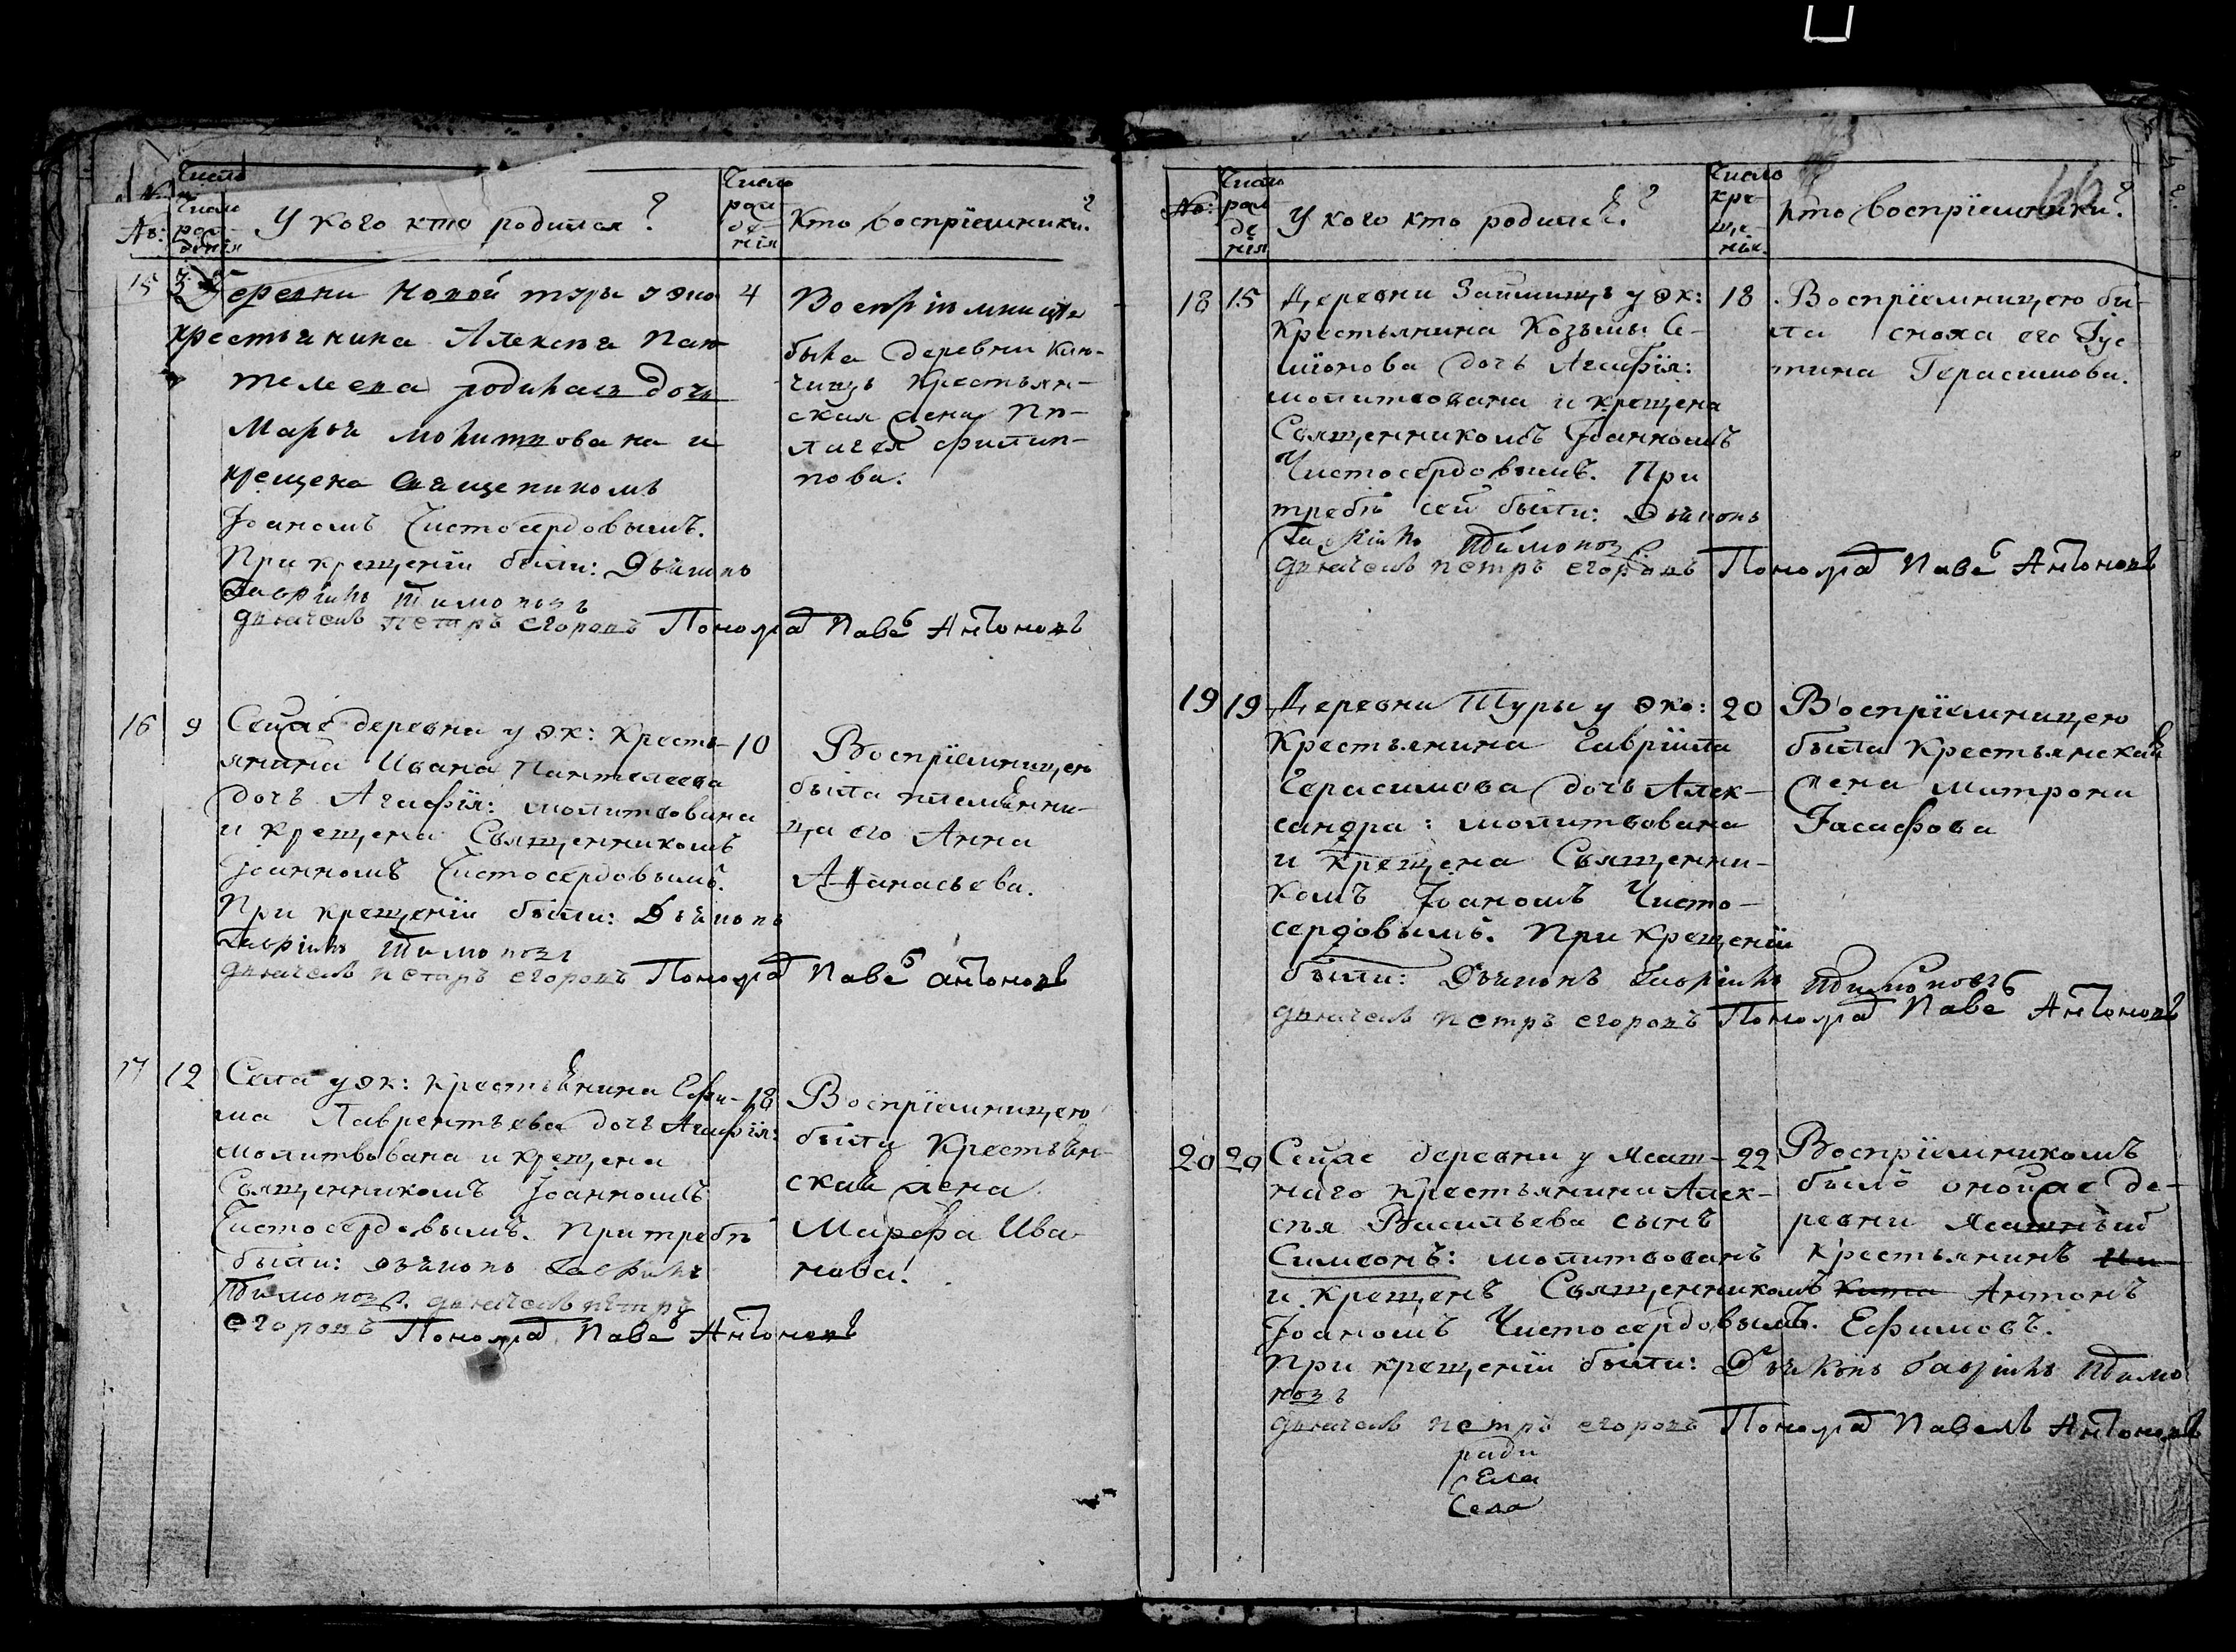 Число
№: Число рож- денія
У кого кто родился?
Число рож- де- нія
Кто воспріемники?
15 3 Деревни Новой туры у эко
крестьянина Алексея Пан-
телеева родилась дочь
Марья молитвована и
крещена священикомъ
Іоаномъ Чистосердовымъ.
При крещеніи были: Дьяконъ
Гавріилъ Тимоновъ
дьячекъ петръ егоровъ Пономар Паве Антоновъ
4 Воспріемницею
была деревни Кин-
чищъ крестьян-
ская жена Пе-
лагея Филип-
пова.
16 9 Сейже деревни у эк: кресть-
янина Ивана Пантелеева
дочь Агафія: молитвована
и крещена Священникомъ
Іоанномъ Чистосердовымъ.
При крещеніи были: Дьяконъ
Гавріилъ Тимоновъ
дьячекъ петръ егоровъ Пономар Паве антоновъ
10 Воспріемницею
была племянни-
ца его Анна
Афанасьева.
17 12 Села у эк: крестьянина Ефи-
ма Лаврентьева дочь Агафія:
молитвована и крещена
Священникомъ Іоанномъ
Чистосердовымъ. При требѣ
были: дьяконъ Гавріилъ
Тимоновъ. дьячекъ петръ
егоровъ Пономар Паве Антоновъ
18 Воспріемницею
была Крестьян-
ская жена
Марфа Ива-
нова.
№: Число рож де нія
У кого кто родился?
Число кре- ще- нія.
Кто воспріемники?
18 15 Деревни Займищъ у эк:
Крестьянина Козьмы Се-
міонова дочь Агафія:
молитвована и крещена
Священникомъ Іоанномъ
Чистосердовымъ. При
требѣ сей были: Дьяконъ
Гавріилъ Тимоновъ
дьячекъ петръ егоровъ Пономар Паве Антоновъ
18 Воспріемницею бы-
ла сноха его Іус
тина Герасимова.
19 19 Деревни Туры у эко:
Крестьянина Гавріила
Герасимова дочь Алек-
сандра: молитвована
и крещена Священни-
комъ Іоаномъ Чисто-
сердовымъ. При крещеніи
были: Дьяконъ Гавріилъ Тимоновъ
дьячекъ петръ егоровъ Пономар Паве Антоновъ
20 Воспріемницею
была Крестьянская
жена Матрона
Іасафова
20 20 Сейже деревни у Ясаш-
наго крестьянина Алек-
сѣя Васильева сынъ
Симеонъ: молитвованъ
и крещенъ Священникомъ
Іоаномъ Чистосердовымъ.
При крещеніи были: Дьяконъ Гавріилъ Тимо
новъ
дьячекъ петръ егоровъ Пономар Павелъ Антоновъ
22 Воспріемникомъ
былъ онойже де-
ревни Ясашный
крестьянинъ Ни-
кита Антонъ
Ефимовъ.
ради
Села
Села